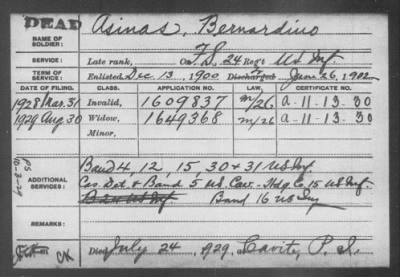 DEAD
Asinas, Bernardino
NAME OF SOLDIER:
SERVICE: Late rank, Co. F.S. 24 Reg't US Inf
TERM OF SERVICE: Enlisted Dec 13, 1900 Discharged June 26, 1902
DATE OF FILING. CLASS. APPLICATION NO. LAW. CERTIFICATE NO.
1928 Mar. 31 Invalid, 1609837 m/26 a-11-13-30
1929 Aug 30 Widow, 1649368 m/26 a-11-13-30
Minor,
ADDITIONAL SERVICES:
Band 4, 12, 15, 30 + 31 US Inf.
Cas Det & Band 5 US Cav. - Hdq Co 15 US Inf.
Band 16 US Inf
REMARKS:
CK Died July 24, 1929, Cavite, P. I.